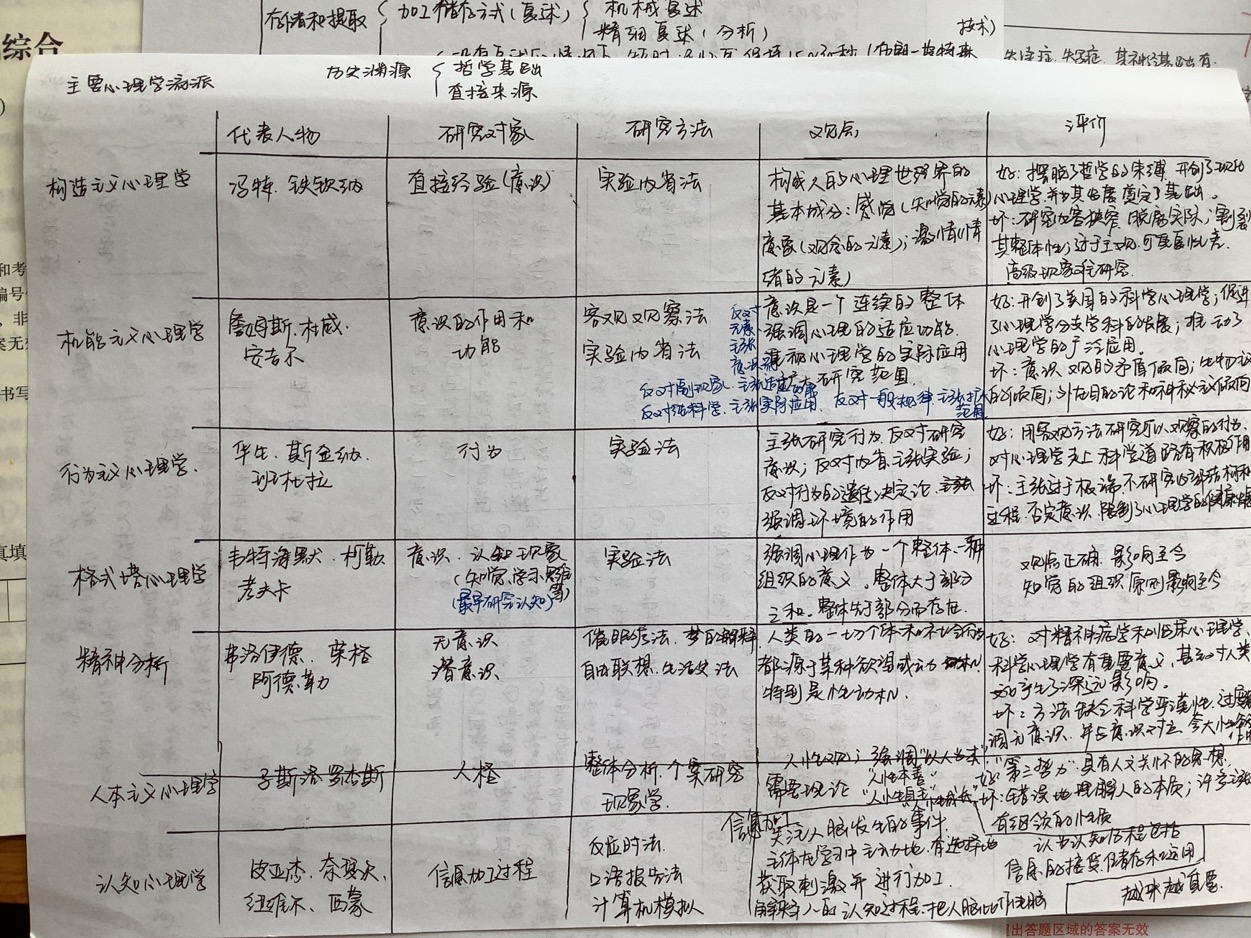 综合
存储和提取 { 加工储存方式(复述) { 机械复述
精细复述(分析)
技术)
主要心理学流派
历史渊源 { 哲学基础
直接来源
代表人物 研究对象 研究方法 观点 评价
构造主义心理学
冯特.铁钦纳
直接经验(意识)
实验内省法
构成人的心理世界的
基本成分:感觉(知觉的元素)
意象(观念的元素);激情(情
绪的元素)
好:摆脱了哲学的束缚,开创了现代
心理学,并为其发展奠定了基础。
坏:研究内容狭窄,脱离实际;割裂
其整体性;过于主观,可重复性差.
高级现象难研究.
机能主义心理学
詹姆斯.杜威.
安吉尔
意识的作用和
功能
客观观察法
实验内省法
反对
元素
主张
意识流
意识是一个连续的整体
强调心理的适应功能.
重视心理学的实际应用
扩大研究范围.
反对副现象、主张适应功能
反对纯科学、主张实际应用、反对一般规律 主张扩大
范围
好:开创了美国的科学心理学;促进
了心理学分支学科的发展;推动了
心理学的广泛应用.
坏:意识观的矛盾倾向;生物主义
的倾向;外在目的论和神秘主义倾向
行为主义心理学.
华生.斯金纳.
班杜拉
行为
实验法
主张研究行为,反对研究
意识;反对内省.主张实验;
反对行为的遗传决定论.主张
强调环境的作用
好:用客观方法研究可以观察的行为.
对心理学走上科学道路有积极作用
坏:主张过于极端.不研究心理的内部结构和
过程.否定意识.限制了心理学的健康发展
格式塔心理学
韦特海默.柯勒
考夫卡
意识.认知现象
(知觉.学习.思维等)
(最早研究认知)
实验法
强调心理作为一个整体.一种
组织的意义.整体大于部分
之和.整体先于部分而存在.
观点正确.影响至今
知觉的组织原则影响至今
精神分析
弗洛伊德、荣格
阿德勒
无意识
潜意识
催眠疗法.梦的解释
自由联想.生活史法
人类的一切个体和社会行为
都源于某种欲望或动机
特别是性动机.
好:对精神病学和临床心理学、
科学心理学有重要意义,甚至对人类
文化产生了深远影响。
坏:方法缺乏科学严谨性.过度强
调无意识.并与意识对立.夸大性的作用
人本主义心理学
马斯洛 罗杰斯
人格
整体分析.个案研究
现象学.
人性观:强调"以人为本"
"人性本善"
需要理论 "人性自主"
好:"第三势力"具有人文关怀的思想.
坏:错误地理解人的本质;许多主张
有纲领的性质
认知心理学
皮亚杰、奈瑟尔、
纽维尔、西蒙
信息加工过程
反应时法.
口语报告法
计算机模拟
信息加工
关注人脑发生的事件.
主体在学习中主动地.有选择地
获取刺激并进行加工.
解释人的认知过程.把人脑比作电脑
认为认知历程包括
信息的接受、储存和运用
越来越重要
出答题区域的答案无效